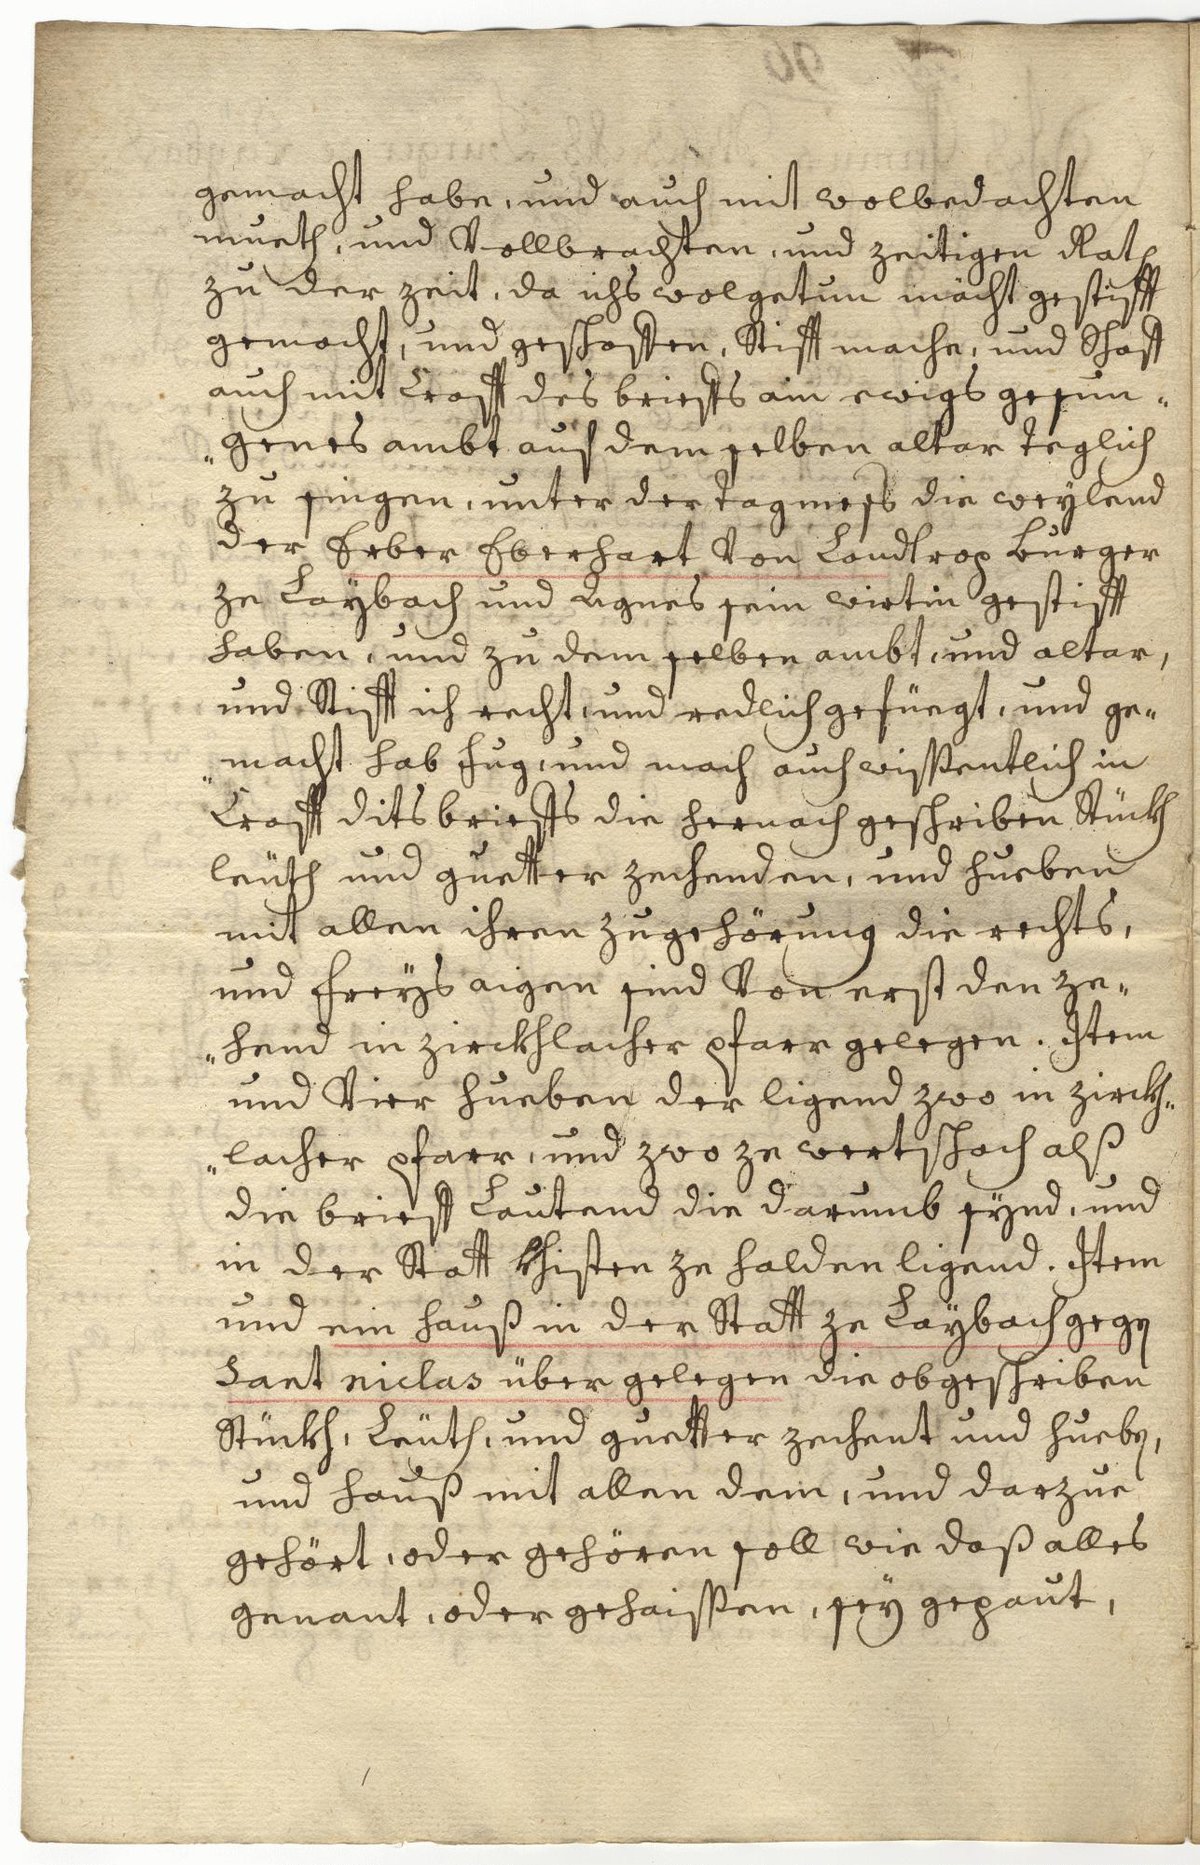 gemacht habe, und auch mit wolbedachten
mueth, und Vollbrachten, und zeitigen Rath
zu der zeit, da ichs wolgetun mächt gestifft
gemacht, und geschaffen, Stifft mache, und Schaff
auch mit Crafft des brieffs ain ewigs gesun„
„genes ambt auf dem selben altar teglich
zu singen, unter der tagmess die weylend
der Erber Eberhart Von Landtrop Burger
ze Laybach und Agnes sein wirtin gestifft
haben, und zu dem selben ambt, und altar,
und Stifft ich recht, und redlich gefüegt, und ge„
„macht hab fug, und mach auch wissentlich in
Crafft dits brieffs die hernach geschriben Stückh
leüth und guetter zechenden, und hueben
mit allen ihren zugehörung die rechts,
und freÿs aigen sind Von erst den ze„
„hend in zirckhlacher pfarr gelegen. Item
und Vier hueben der ligend zwo in zirckh„
„lacher pfarr, und zwo ze wertschach alß
die brieff Lautend die darumb sÿnd, und
in der Statt khisten ze halden ligend. Item
und ein hauß in der Statt ze Laÿbach gegen
Sant niclas über gelegen die obgeschriben
Stückh, Leüth, und guetter zechent und hueben,
und hauß mit allen dem, und darzue
gehört, oder gehören soll wie daß alles
genant, oder gehaissen, seÿ gepaut,